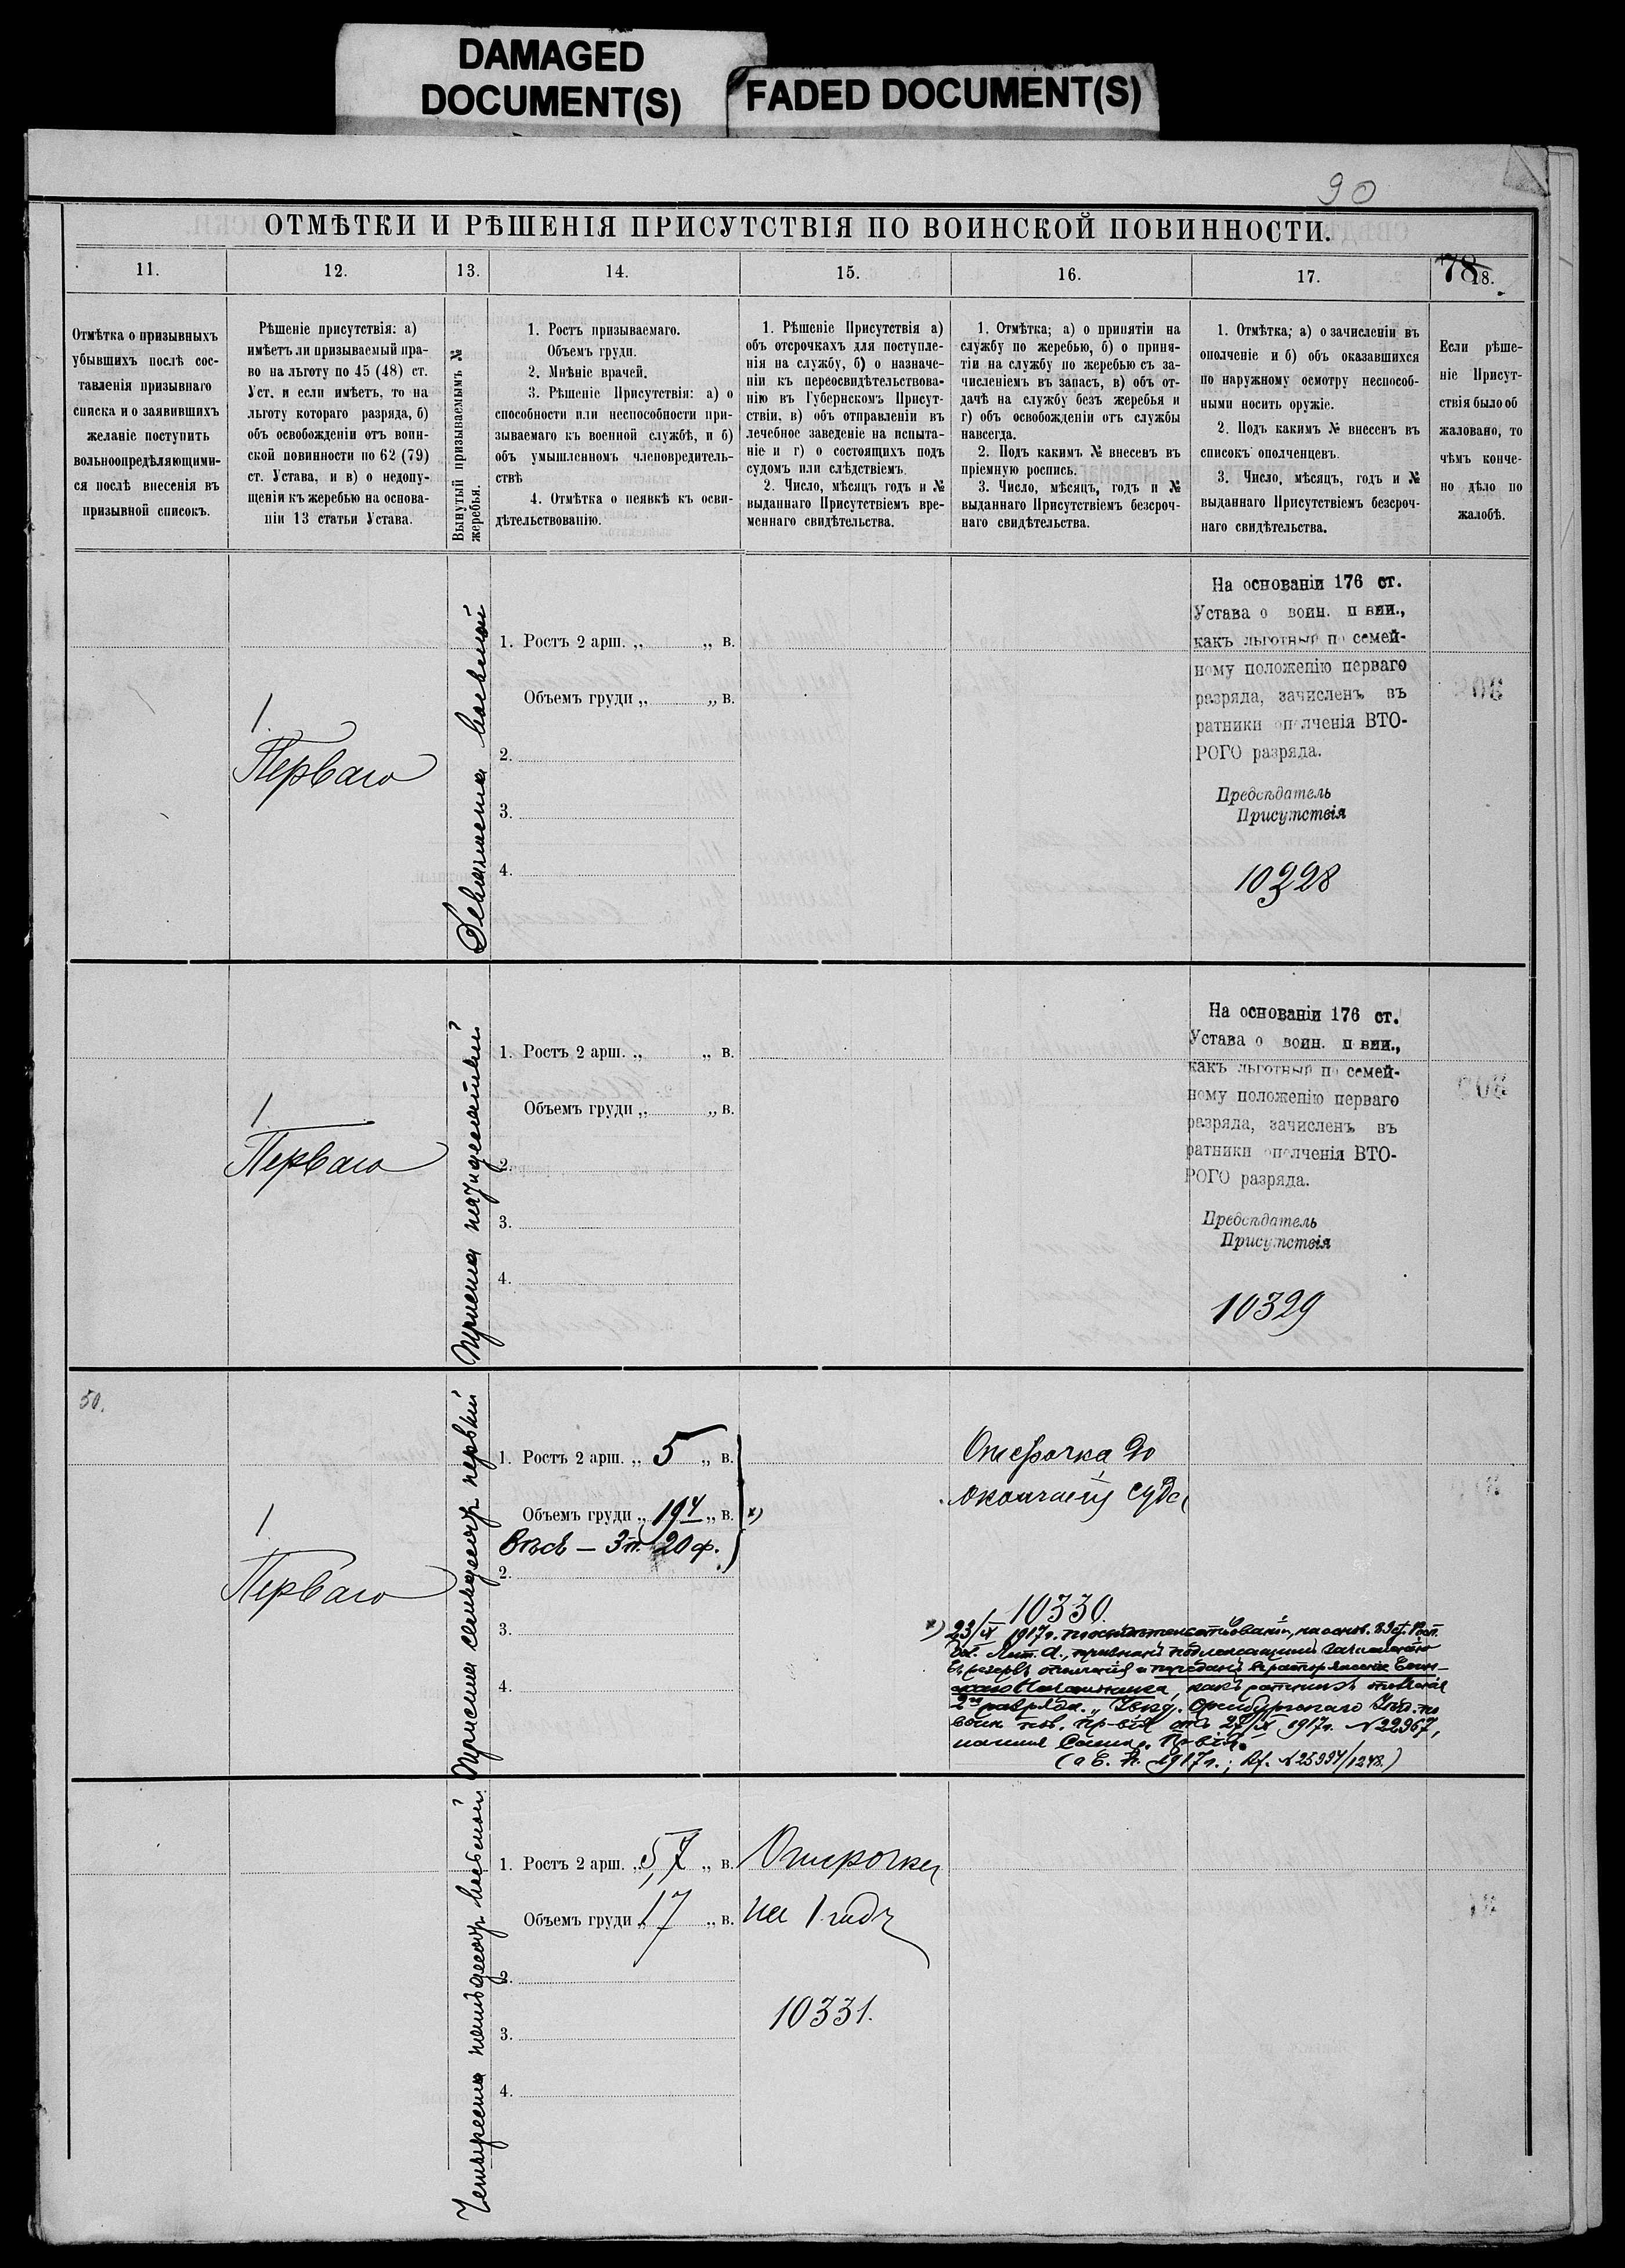 DAMAGED
DOCUMENT(S)
FADED DOCUMENT(S)
90
ОТМѢТКИ И РѢШЕНІЯ ПРИСУТСТВІЯ ПО ВОИНСКОЙ ПОВИННОСТИ.
11.
12.
13.
14.
15.
16.
17.
78
18.
Отмѣтка о призывныхъ
убывшихъ послѣ сос-
тавленія призывнаго
списка и о заявившихъ
желаніе поступить
вольноопредѣляющими-
ся послѣ внесенія въ
призывной списокъ.
Рѣшеніе присутствія: а)
имѣетъ ли призываемый пра-
во на льготу по 45 (48) ст.
Уст. и если имѣетъ, то на
льготу котораго разряда, б)
объ освобожденіи отъ воин-
ской повинности по 62 (79)
ст. Устава, и в) о недопу-
щеніи къ жеребью на основа-
ніи 13 статьи Устава.
Вынутый призываемымъ №
жеребья.
1. Ростъ призываемаго.
Объемъ груди.
2. Мнѣніе врачей.
3. Рѣшеніе Присутствія: а) о
способности или неспособности при-
зываемаго къ военной службѣ, и б)
объ умышленномъ членовредитель-
ствѣ
4. Отмѣтка о неявкѣ къ осви-
дѣтельствованію.
1. Рѣшеніе Присутствія а)
объ отсрочкахъ для поступле-
нія на службу, б) о назначе-
ніи къ переосвидѣтельствова-
нію въ Губернскомъ Присут-
ствіи, в) объ отправленіи въ
лечебное заведеніе на испыта-
ніе и г) о состоящихъ подъ
судомъ или слѣдствіемъ.
2. Число, мѣсяцъ годъ и №
выданнаго Присутствіемъ вре-
меннаго свидѣтельства.
1. Отмѣтка; а) о принятіи на
службу по жеребью, б) о приня-
тіи на службу по жеребью съ за-
численіемъ въ запасъ, в) объ от-
дачѣ на службу безъ жеребья и
г) объ освобожденіи отъ службы
навсегда.
2. Подъ какимъ № внесенъ въ
пріемную роспись.
3. Число, мѣсяцъ, годъ и №
выданнаго Присутствіемъ безсроч-
наго свидѣтельства.
1. Отмѣтка; а) о зачисленіи въ
ополченіе и б) объ оказавшихся
по наружному осмотру неспособ-
ными носить оружіе.
2. Подъ какимъ № внесенъ въ
списокъ ополченцевъ.
3. Число, мѣсяцъ, годъ и №
выданнаго Присутствіемъ безсроч-
наго свидѣтельства.
Если рѣше-
ніе Присут-
ствія было об
жаловано, то
чѣмъ конче-
но дѣло по
жалобѣ.
1.
Перваго
Девяноста восьмой
1. Ростъ 2 арш. „ „ в.
Объемъ груди „ „ в.
2.
3.
4.
На основаніи 176 ст.
Устава о воин. п вин.,
какъ льготный по семей-
ному положенію перваго
разряда, зачисленъ въ
ратники ополченія ВТО-
РОГО разряда.
Предсѣдатель
Присутствія
10328
1.
Перваго
Триста пятидесятый
1. Ростъ 2 арш. „ „ в.
Объемъ груди „ „ в.
2.
3.
4.
На основаніи 176 ст.
Устава о воин. п вин.,
какъ льготный по семей-
ному положенію перваго
разряда, зачисленъ въ
ратники ополченія ВТО-
РОГО разряда.
Предсѣдатель
Присутствія
10329
50.
1.
Перваго
Триста семидесят первый
1. Ростъ 2 арш. „ 5 „ в.
Объемъ груди „ 19 4 „ в. х)
Вѣсъ — 3 п. 20 ф.
2.
3.
4.
Отсрочка до
окончанія суда
10330.
х) 23/IX 1917г.
въ резервъ ополченія и переданъ въ распоряженіе
какъ ратникъ ополченія
2го разряда.
воин. пов. пр-вія отъ 27/IX 1917г. №22967,
1917г.
Четыреста пятьдесят восьмой.
1. Ростъ 2 арш. „ 5,7 „ в.
Объемъ груди „ 17 „ в.
2.
3.
4.
Отсрочка
на 1 годъ
10331.